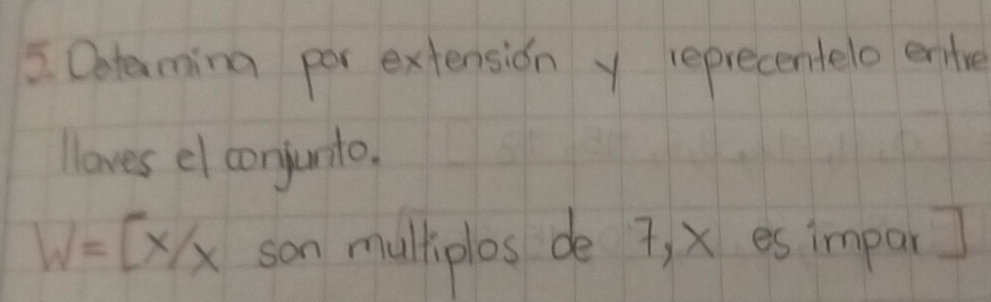 5. Determina por extensión y reprecentelo entre
llaves el conjunto.
W=[x/x son multiplos de 7, x es impar]